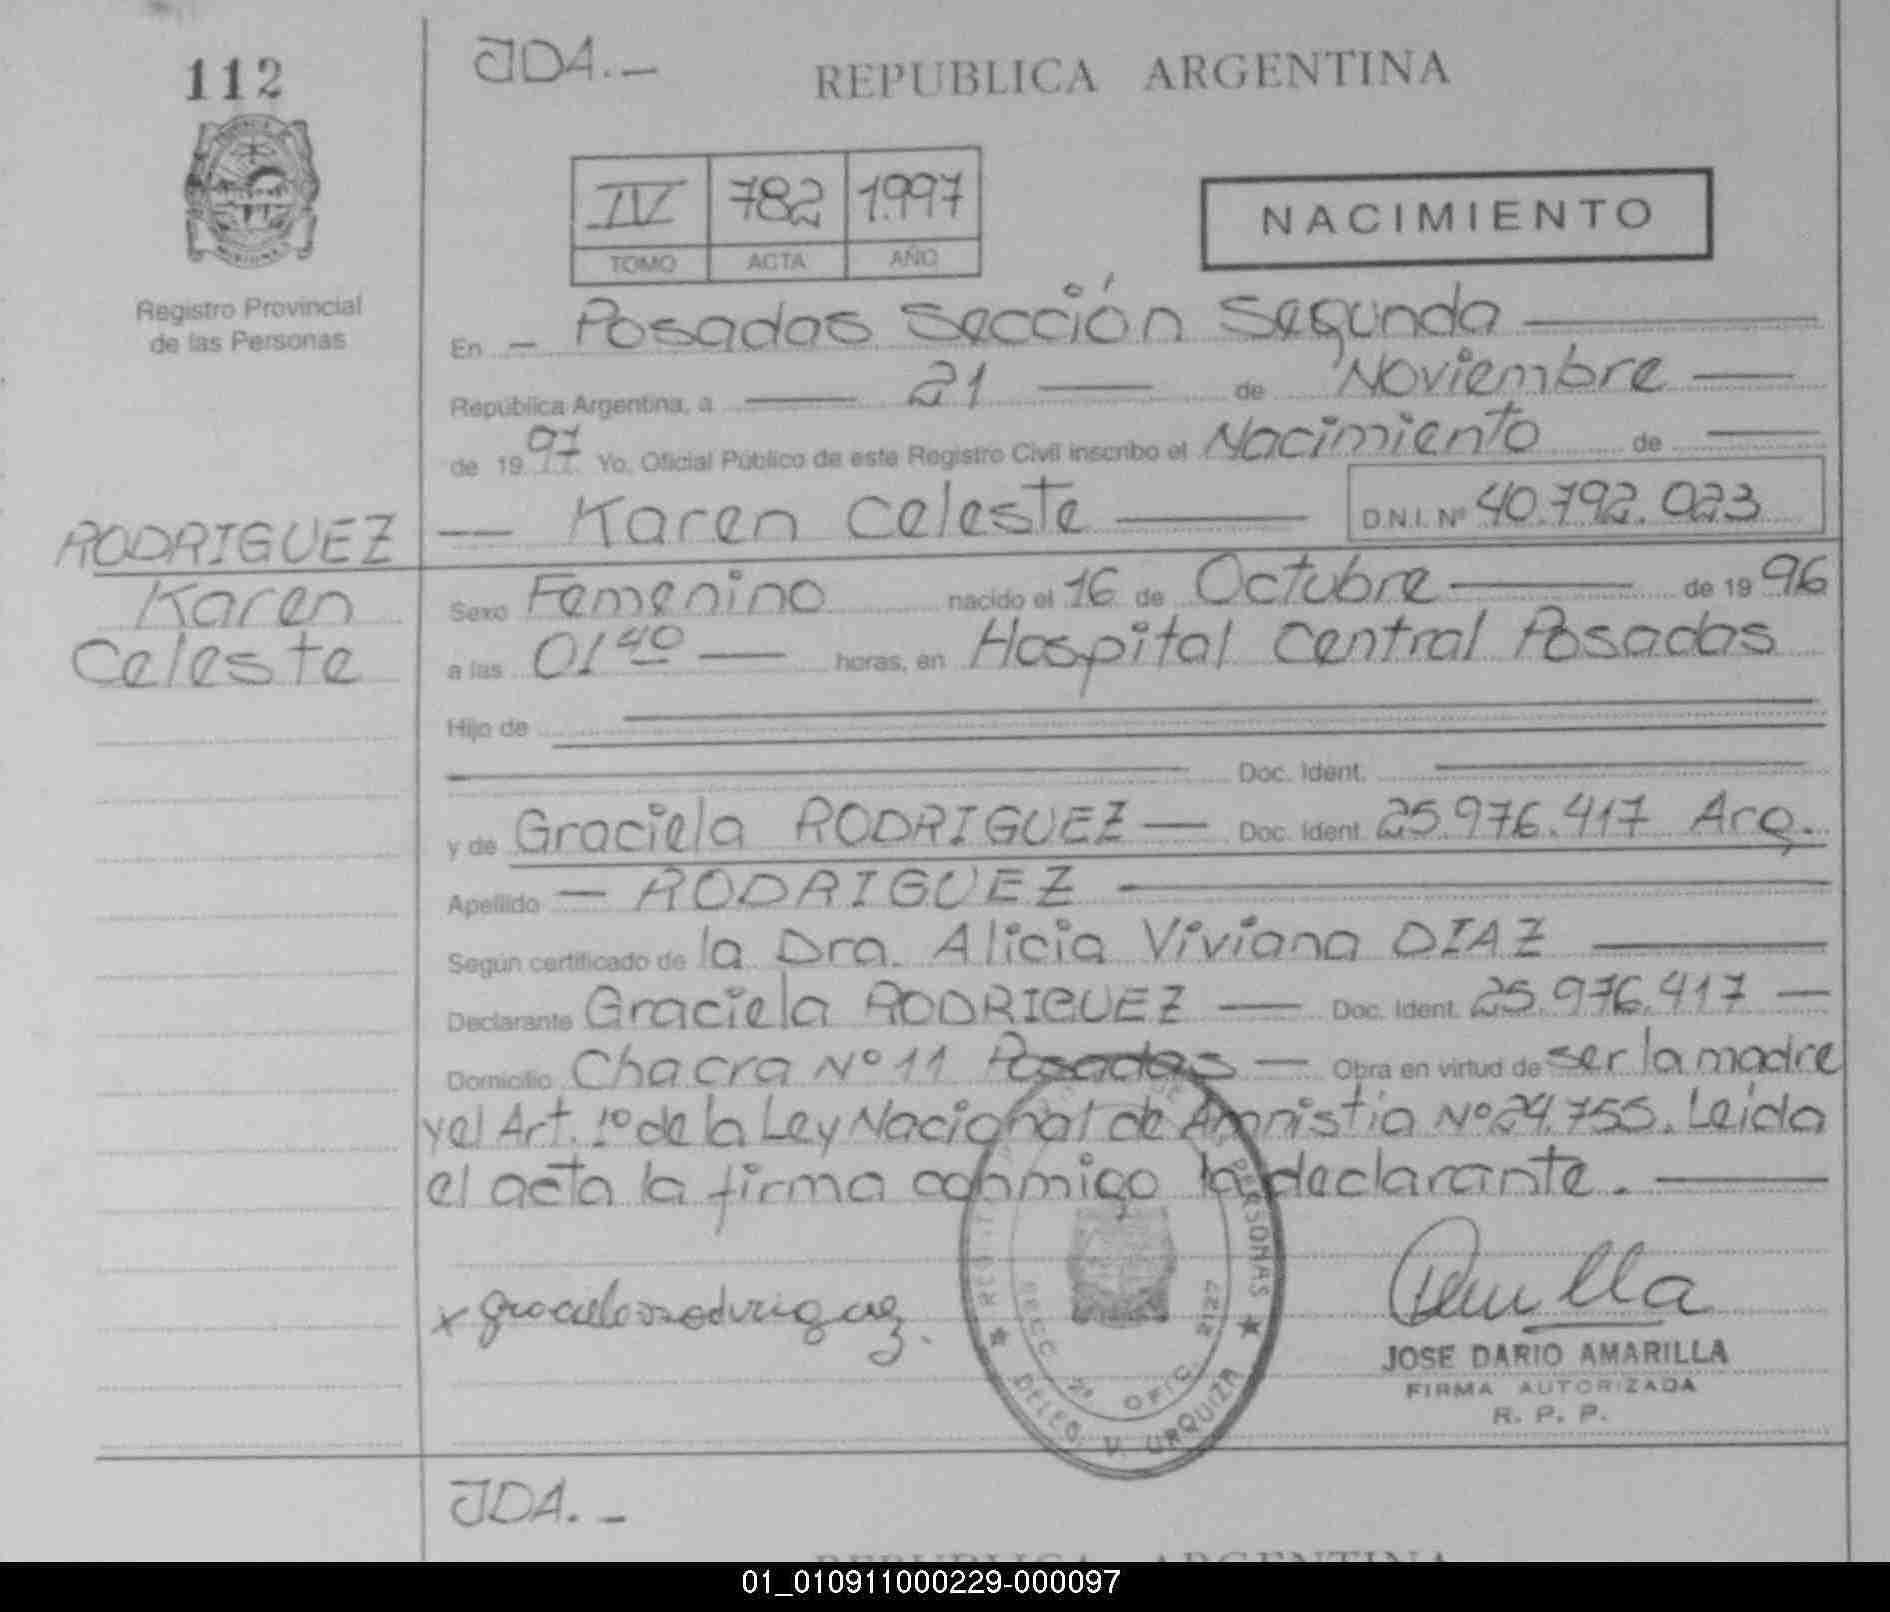 112
JDA.-
REPUBLICA ARGENTINA
IV 782 1.997
TOMO ACTA AÑO
NACIMIENTO
Registro Provincial
de las Personas
En - Posadas Sección Segunda
República Argentina, a 21 de Noviembre
de 1997 Yo, Oficial Público de este Registro Civil inscribo el Nacimiento de
Karen Celeste D.N.I. Nº 40.792.023
RODRIGUEZ
Karen
Celeste
Sexo Femenino nacido el 16 de Octubre de 1996
a las 01 40 horas, en Hospital Central Posadas
Hijo de
Doc. Ident.
y de Graciela RODRIGUEZ - Doc. Ident. 25.976.417 Arg.
Apellido - RODRIGUEZ
Según certificado de la Dra. Alicia Viviana DIAZ
Declarante Graciela RODRIGUEZ - Doc. Ident. 25.976.417 -
Domicilio Chacra Nº 11 Posadas - Obra en virtud de ser la madre
y el Art. 1º de la Ley Nacional de Amnistia Nº 24.755. Leida
el acta la firma conmigo la declarante.
x graciela rodriguez.
PERSONAS
OFIC. 2127
DELEG. V. URQUIZA
JOSE DARIO AMARILLA
FIRMA AUTORIZADA
R. P. P.
JDA.-
REPUBLICA ARGENTINA
01_010911000229-000097